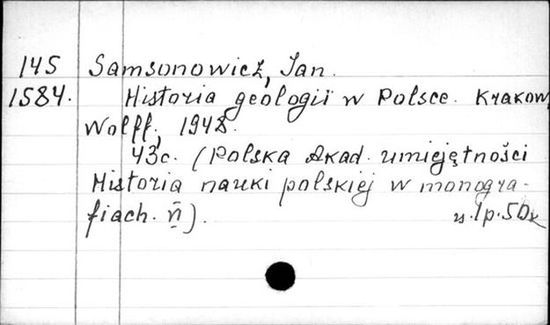 145 Samsonowicz, Jan.
1584. Historia geologii w Polsce. Krakow,
Wolff, 1948.
43c. (Polska Akad. umiejętności
Historia nauki polskiej w monogra-
fiach. ñ).
ц. 1p. 50к